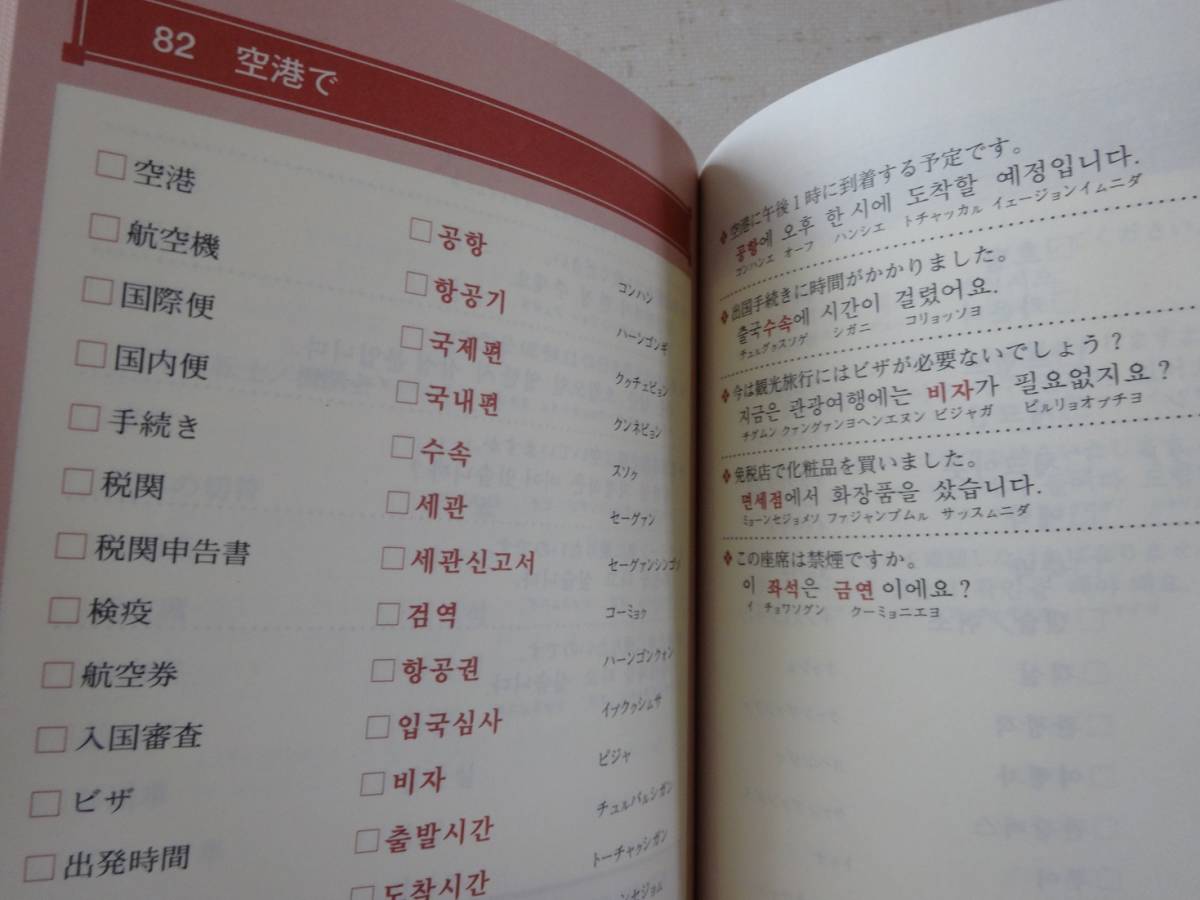 82 空港で
□空港
□航空機
□国際便
□国内便
□手続き
□税関
□税関申告書
□検疫
□航空券
□入国審査
□ビザ
□出発時間
□공항 コンハン
□항공기 ハーンゴンギ
□국제편 ククチェピョン
□국내편 クンネピョン
□수속 スソク
□세관 セーグァン
□세관신고서 セーグァンシンゴソ
□검역 コーミョク
□항공권 ハーンゴンクォン
□입국심사 イプククシムサ
□비자 ピジャ
□출발시간 チュルバルシガン
□도착시간 トーチャクシガン
ンセジョム
❖空港に午後1時に到着する予定です。
공항에 오후 한 시에 도착할 예정입니다.
コンハンエ オーフ ハンシエ トチャッカル イェージョンイムニダ
❖出国手続きに時間がかかりました。
출국수속에 시간이 걸렸어요.
チュルグクスソゲ シガニ コリョッソヨ
❖今は観光旅行にはビザが必要ないでしょう?
지금은 관광여행에는 비자가 필요없지요?
チグムン クァングァンヨヘンエヌン ビジャガ ピルリョオプチヨ
❖免税店で化粧品を買いました。
면세점에서 화장품을 샀습니다.
ミョーンセジョメソ ファジャンプムル サッスムニダ
❖この座席は禁煙ですか。
이 좌석은 금연 이에요?
イ チョワソグン クーミョニエヨ